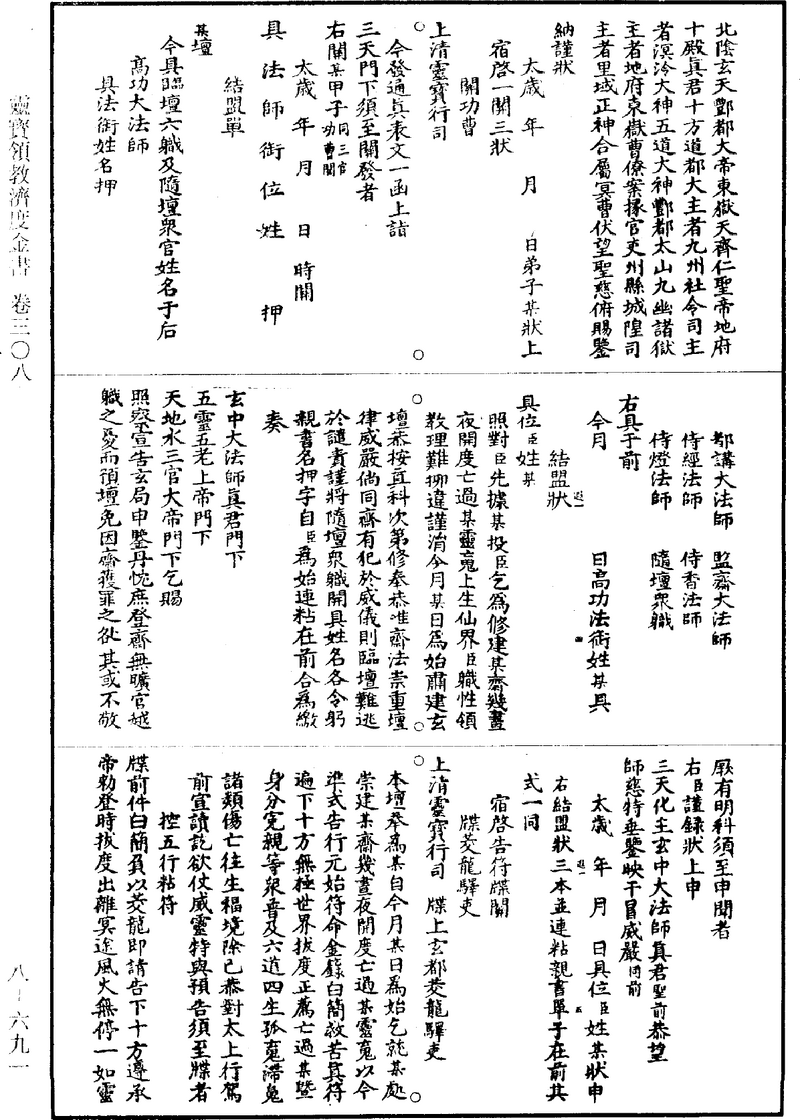 北陰玄天酆都大帝東嶽天齊仁聖帝地府
十殿真君十方道都大主者九州社令司主
者溟泠大神五道大神酆都太山九幽諸獄
主者地府東嶽曹僚案掾官吏州縣城隍司
主者里域正神合屬冥曹伏望聖慈俯賜鑒
納謹狀
太歲 年 月 日弟子某狀上
宿啓一關三狀
關功曹
上清靈寶行司
今發通真表文一函上詣
三天門下須至關發者
右關某甲子同三官功曹關
太歲 年 月 日 時關
具 法 師 銜 位 姓 押
結盟單
某壇
今具臨壇六職及隨壇衆官姓名于后
高功大法師
具法銜姓名押
都講大法師 監齋大法師
侍經法師 侍香法師
侍燈法師 隨壇衆職
右具于前
今月 日高功法銜姓某具
結盟狀
具位臣姓某
照對臣先據某投臣乞爲修建某齋幾晝
夜開度亡過某靈䰟上生仙界臣職性領
教理難挪違謹消今月某日爲始肅建玄
壇恭按直科次第修奉恭惟齋法崇重壇
律威嚴倘同齋有犯於威儀則臨壇難逃
於譴責謹將隨壇衆職開具姓名各令躬
親書名押字自臣爲始連粘在前合爲繳
奏
玄中大法師真君門下
五靈五老上帝門下
天地水三官大帝門下乞賜
照察宣告玄局申鑒丹忱庶登齋無曠官越
職之憂而預壇免因齋獲罪之祉其或不敬
厥有明科須至申聞者
右臣謹錄狀上申
三天化主玄中大法師真君聖前恭望
師慈特垂鑒映干冒威嚴同前
太歲 年 月 日具位臣姓某狀申
右結盟狀三本並連粘親書單子在前其
式一同
宿啓告符牒關
牒茭龍驛吏
上清靈寶行司 牒上玄都茭龍驛吏
本壇奉爲某自今月某日爲始乞就某處
崇建某齋幾晝夜開度亡過某靈䰟以今
準式告行元始符命金籙白簡救苦真符
遍下十方無極世界拔度正薦亡過某暨
身分冤親等衆普及六道四生孤䰟滯魄
諸類傷亡往生福境除已恭對太上行駕
前宣讀訖欲仗威靈特與預告須至牒者
控五行粘符
牒前件白簡負以茭龍即請告下十方遵承
帝勅登時拔度出離冥途風火無停一如靈
靈寶領教濟度金書 卷三〇八
八-六九一